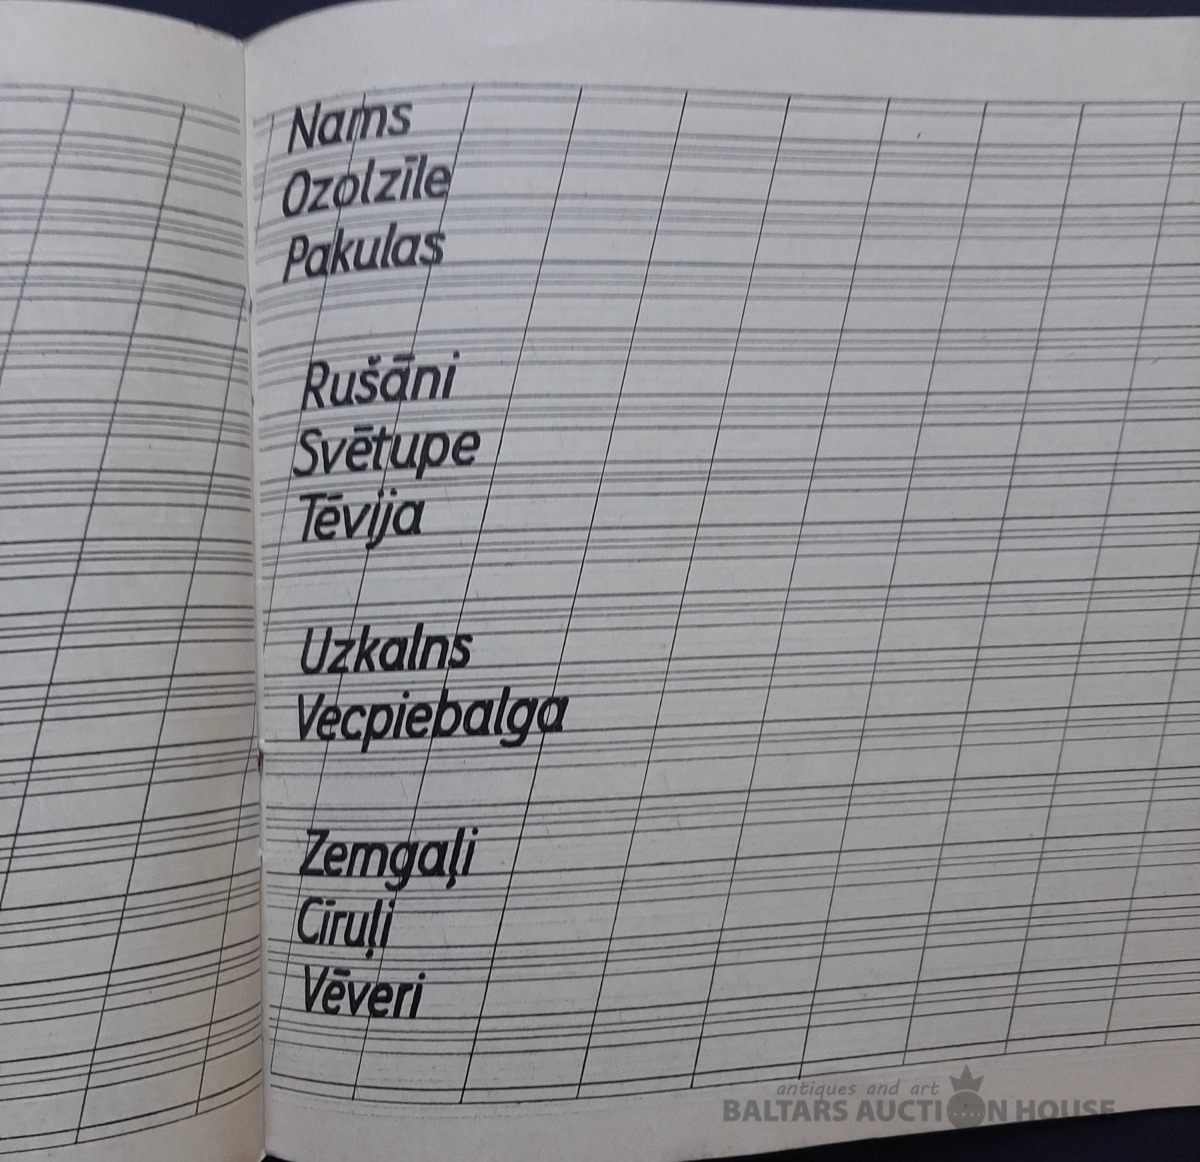 Nams
Ozolzīle
Pakulas
Rušāni
Svētupe
Tēvija
Uzkalns
Vecpiebalga
Zemgaļi
Cīruļi
Vēveri
antiques and art
BALTARS AUCTION HOUSE